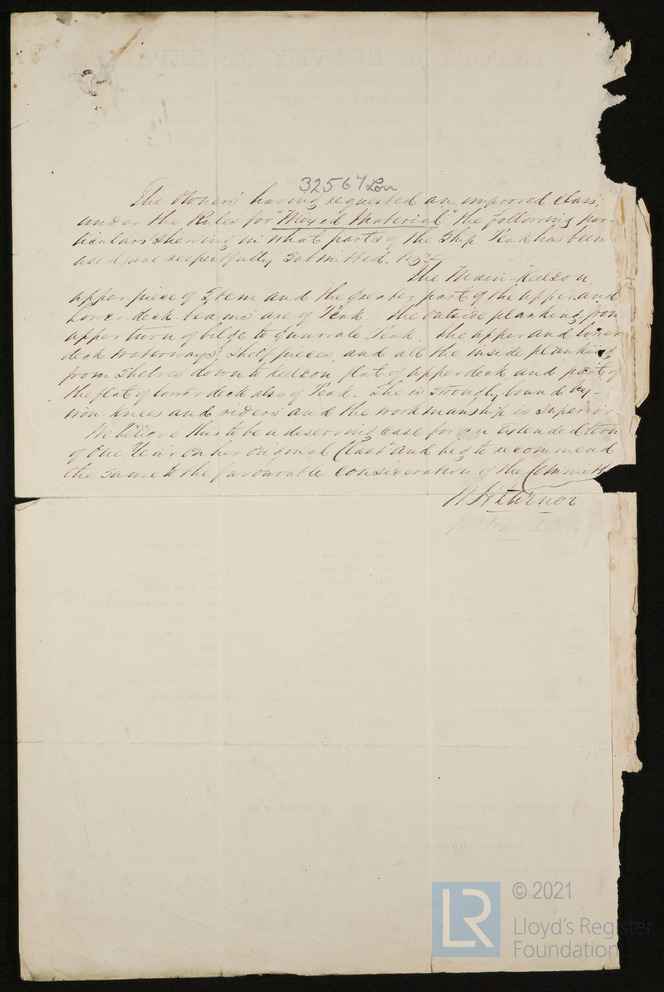 32567 Lon
The Owners having requested an improved class,
under the Rules for "Mixed Material" the following par-
ticulars shewing in what parts of the Ship Teak has been
used are respectfully submitted.
The Main Keelson
upper piece of Stem and the greater part of the upper and
Lower deck beams are of Teak. The outside planking from
upper turn of bilge to Gunwale Teak. The upper and lower
deck waterways, Shelf pieces, and all the inside planking
from Shelves down to keelson flat of upper deck and part of
the flat of lower deck also of Teak. She is strongly bound by
iron knees and riders and the workmanship is Superior
We believe this to be a deserving case for an extended term
of One Year on her original Class and beg to recommend
the same to the favourable consideration of the Committee
W H Turner
LR © 2021
Lloyd's Register
Foundation